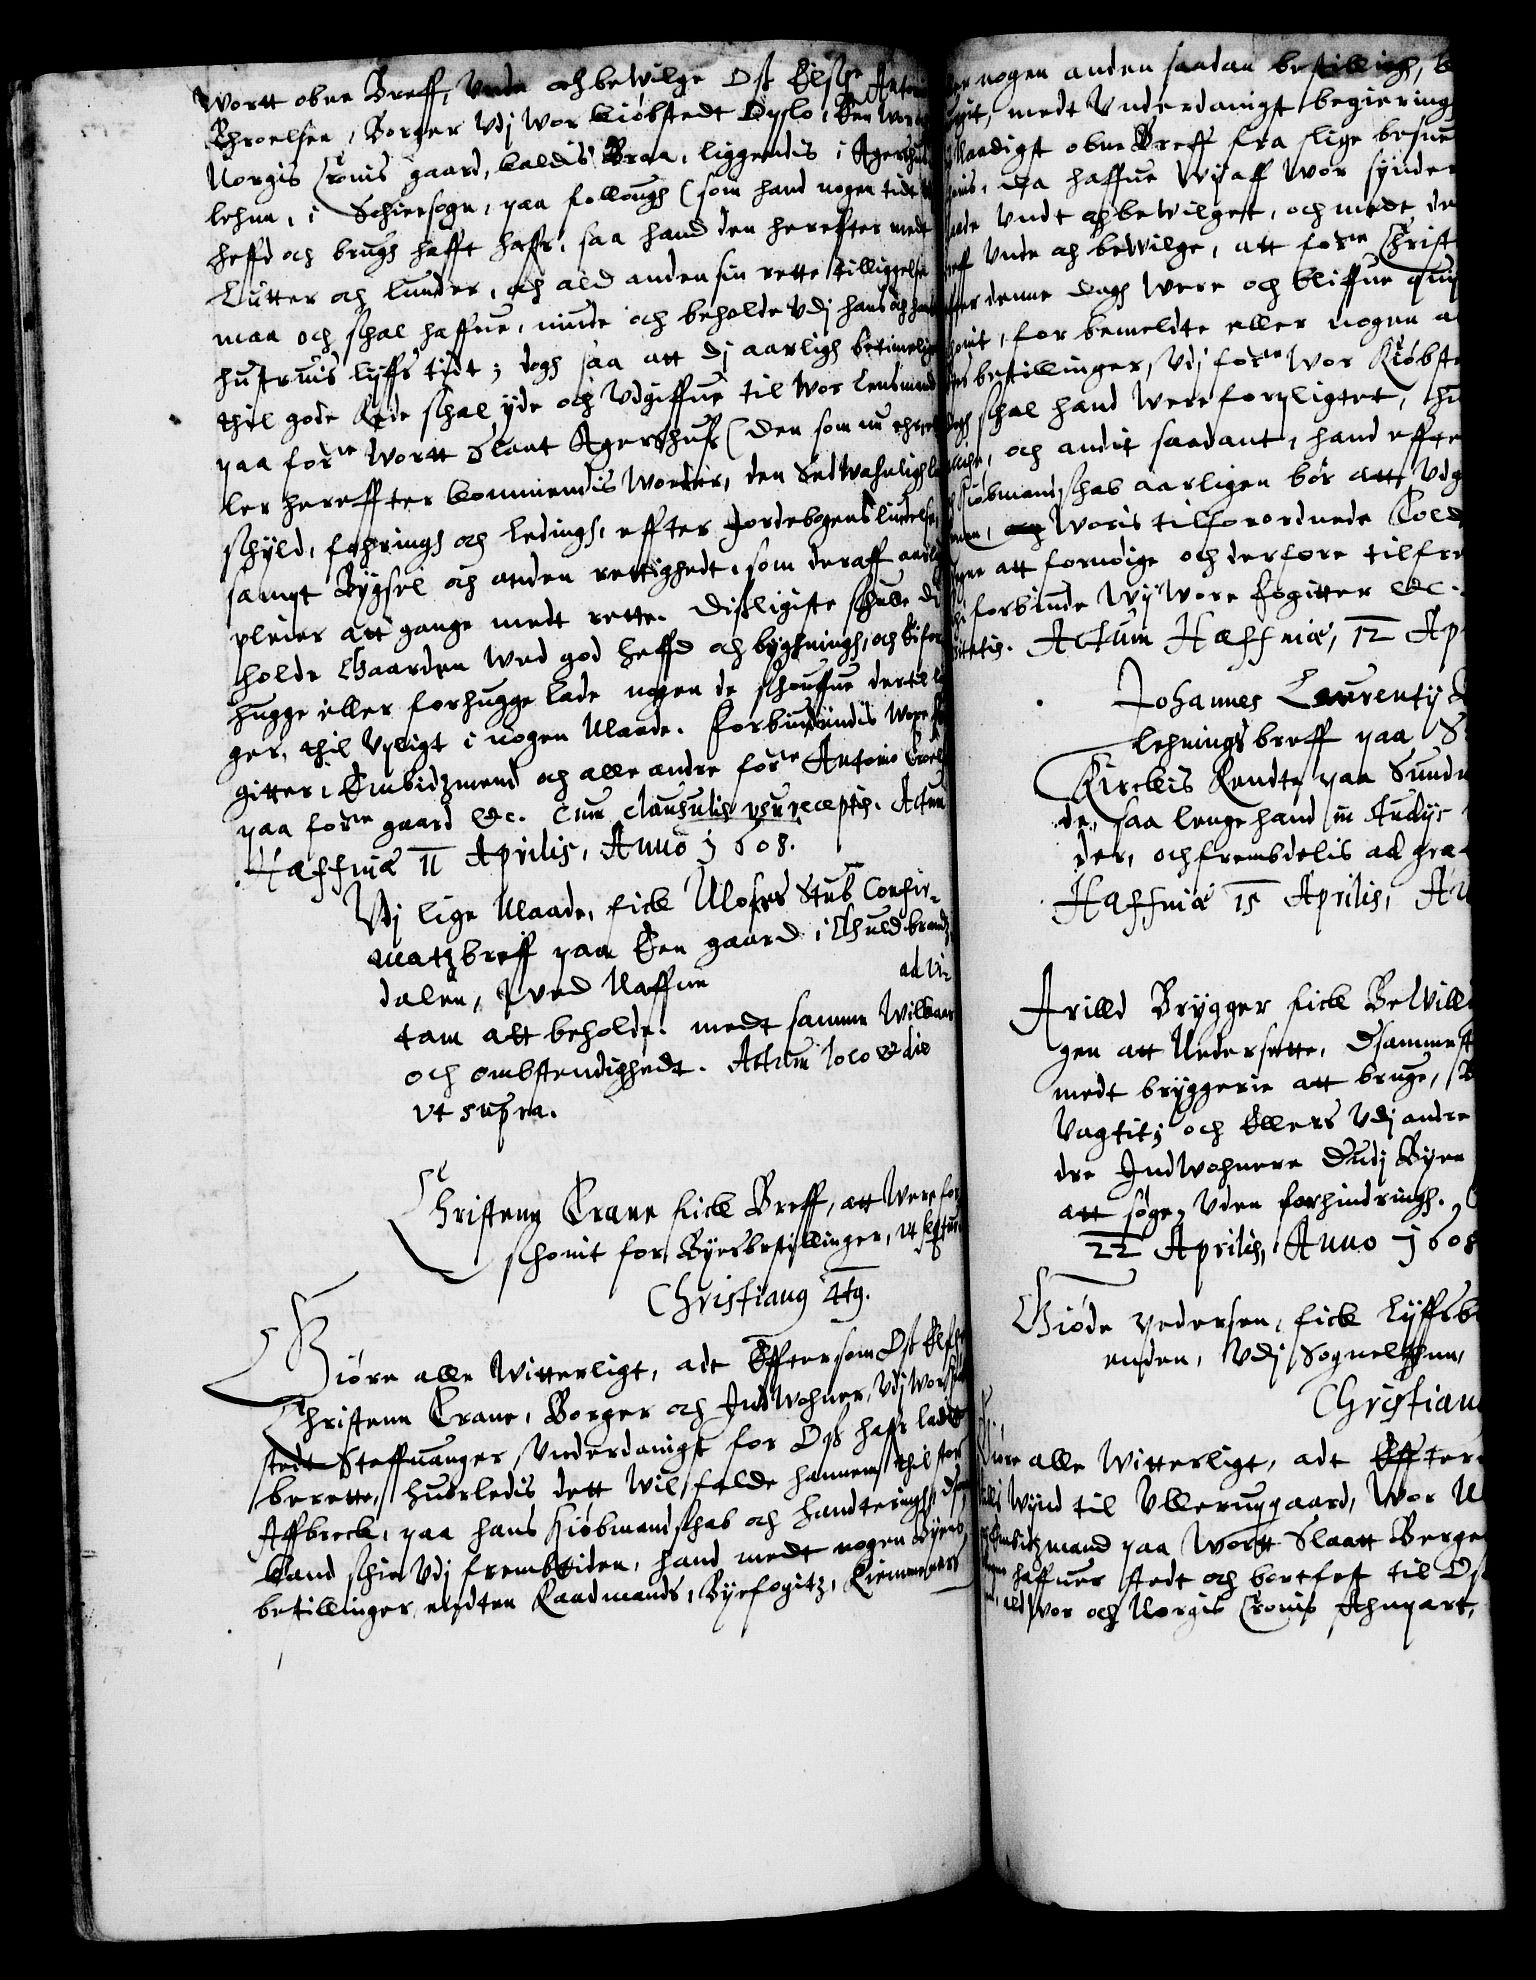 Wortt obne Breff, Unde och bewilge Oss Elsche Antoni
Throelsen, Borger Udj wor kiøbstedt Opslo, Een wor och
Norgis Cronis gaard, kaldis Braa, liggendis i Agershus
lehnn, i Schiersogn, paa follough (som hand nogen tidt
heffd och brugh hafft haffr, saa hand den hereffter medt
Lutter och lunder, och ald anden sin rette tilliggelse
maa och schal haffue, niude och beholde Udj hans och hans
hustruis lyffs tidt; dogh saa att dj aarligh betimeligen
thil gode Rede schal yde och Udgiffue til Wor Lensmand
paa forne Wortt Slaat Agershuss (den som nu ehr, el
ler hereffter kommendis worder, den Sedwahnligh land
schyld, fohrings och ledings, effter Jordebogens liudelse
sampt Bygsel och anden rettighedt, som deraff aarlig
pleier att gange medt rette. Disligiste schulle di
holde Gaarden wed god heffd och bygning, och Ei for
hugge eller forhugge lade nogen de schouffue dertil lig
ger, thil Upligt i nogen Maade. Forbiudindis Wore fo
gitter, Embidzmend och alle andre forne Antonio Troels
paa forne gaard &c. Cum clausulis usu receptis. Actum
Haffniæ 11 Aprilis, Anno 1608.
Udj lige Maade, fick Mogens Stub Confir-
matz breff paa Een gaard i Guldbrandz
dalen, wed Naffue ad vi-
tam att beholde. medt samme Wilkaar
och ombstendighedt. Actum loco & die
ut supra.
Christenn Trane fick Breff, att Were for
schonit for Byesbestillinger, ut seqtur
Christianus 4tus.
Giøre alle Witterligt, adt Efftersom Oss Elsch
Christenn Trane, Borger och IndWohner, Udj Wor kiøb
stedt Staffuanger, Underdanigst for Oss haffr ladet
berette, huorledis dett Wil falde hannem thil stor
Affbreck, paa hans Kiøbmandschab och handteringh, dsom
kand schie Udj frembtiden, hand medt nogen Byens
bestillinger, endten Raadmands, Byefogitz, Kiemmeners

eller nogen anden saadan bestilligh,
ugit, medt Underdanigst begieringh
Naadigst obne Breff fra slige besue
honis, Da haffue Wij aff Wor synder
aade Undt och bewilget, och medt de
reff Unde och bewilge, att forne Christ
ffter denne Dagh Were och bliffue quit
honit, for bemeldte eller nogen a
des bestillinger, Udj forne Wor Kiøbste
Dogh schal hand Were forpligtet,
och andit saadant, hand effte
Kiøbmandschab aarligen bør att Udg
Woris tilforordnede Told
att fornøige och derfore tilfre
forbiude Wij Wore fogitter &c.
Actum Haffniæ, 12 Ap
Johannes Laurentij
lehnings breff paa
Kirckis Rendte paa Sund
de, saa lenge hand in studijs
der, och frembdelis ad gra
Haffniæ 15 Aprilis,
Arilld Brygger fick Bewilli
gen att Nedersette, Dsammest
medt bryggerie att bruge,
Vagtit; och Ellers Udj andre
dre IndWohnere Dudj Byen
att søge, Uden forhindringh.
22 Aprilis, Anno 1608
Giøde Pedersen, fick lyffsb
enden, Udj Sognelehnn,
Christianu
Giøre alle Witterligt, adt Effter
Wind til Ullerupgaard, Wor
Embitzmand paa Wortt Slaatt Berge
haffuer sted och bortfest til Os
ald Wor och Norgis Cronis Ahnpart,